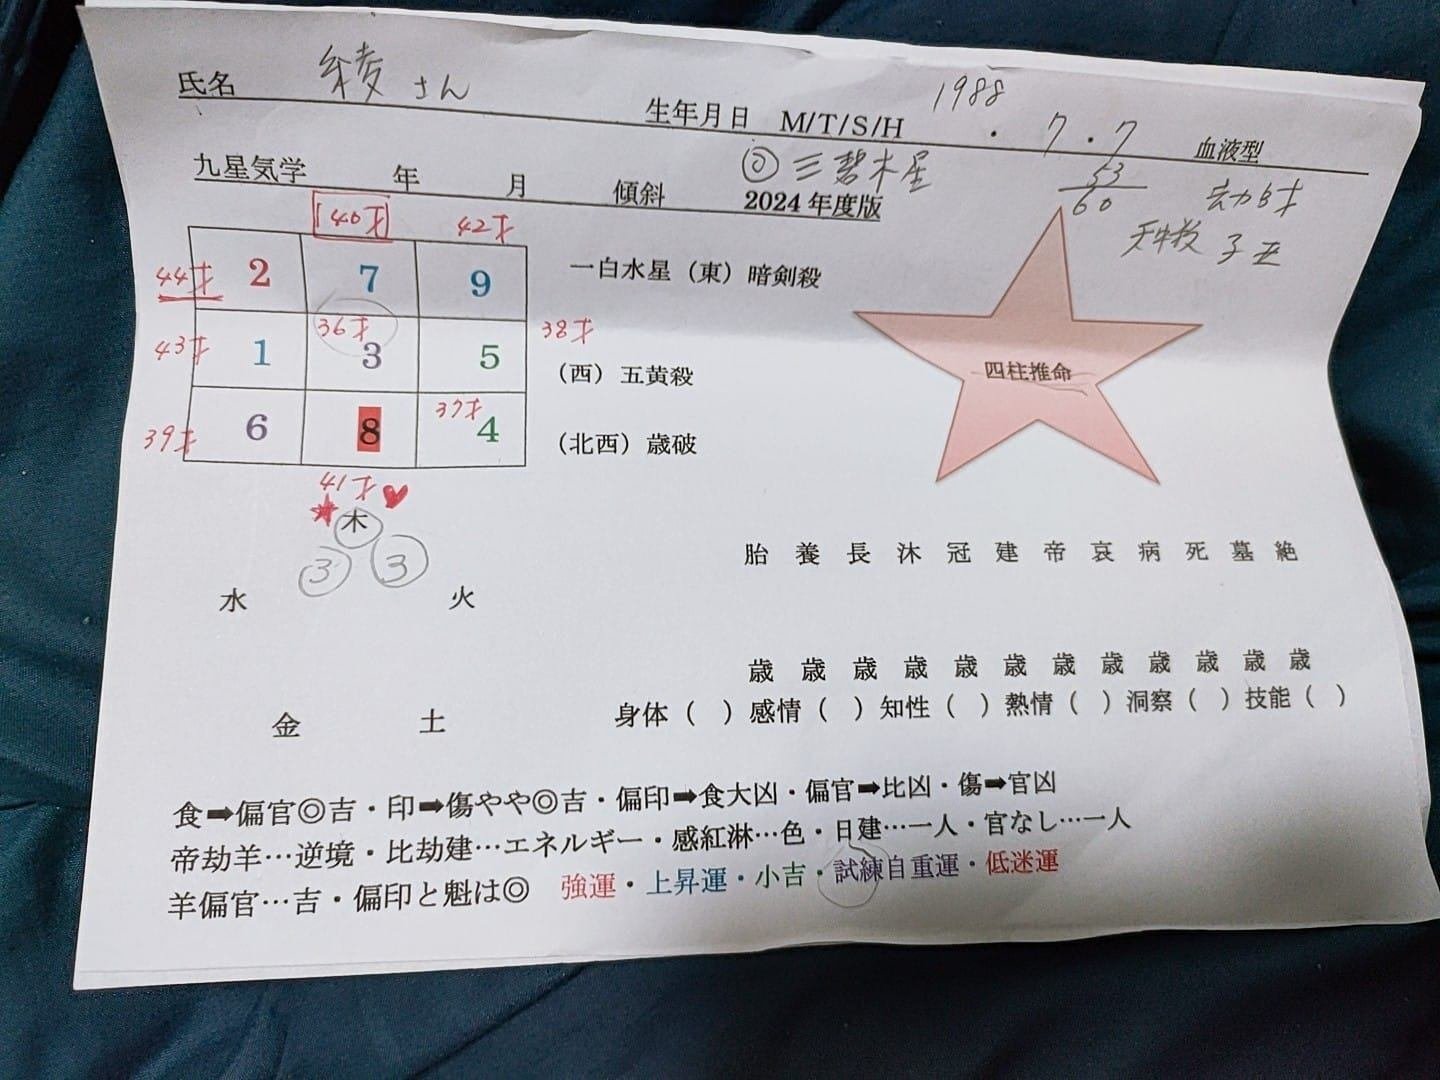 氏名 綾さん
生年月日 M/T/S/H 1988 ・ 7 ・ 7 血液型
九星気学 年 月 傾斜 2024年度版
三碧木星
53
60
天中殺 子丑
40才 42才
44才 2 7 9 一白水星（東）暗剣殺
43才 1 36才 3 5 38才 （西）五黄殺
39才 6 8 37才 4 （北西）歳破
41才
四柱推命
木
3 3
水 火
金 土
胎 養 長 沐 冠 建 帝 哀 病 死 墓 絶
歳 歳 歳 歳 歳 歳 歳 歳 歳 歳 歳 歳
身体（ ）感情（ ）知性（ ）熱情（ ）洞察（ ）技能（ ）
食➡偏官◎吉・印➡傷やや◎吉・偏印➡食大凶・偏官➡比凶・傷➡官凶
帝劫羊…逆境・比劫建…エネルギー・感紅淋…色・日建…一人・官なし…一人
羊偏官…吉・偏印と魁は◎ 強運・上昇運・小吉・試練自重運・低迷運